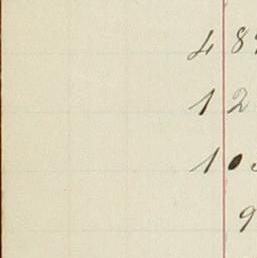 4 8
1 2
1 0
9